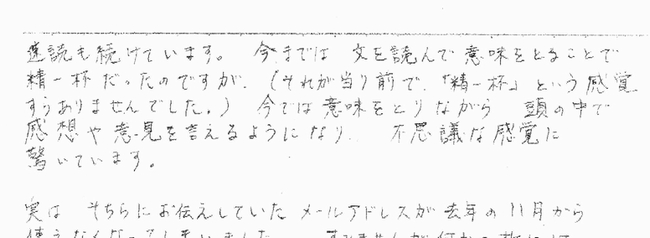 速読も続けています。 今までは 文を読んで意味をとることで
精一杯だったのですが、(それが当り前で、「精一杯」という感覚
すらありませんでした。) 今では意味をとりながら 頭の中で
感想や意見を言えるようになり、 不思議な感覚に
驚いています。
実は そちらにお伝えしていた メールアドレスが 去年の11月から
使えなくなってしまいました。